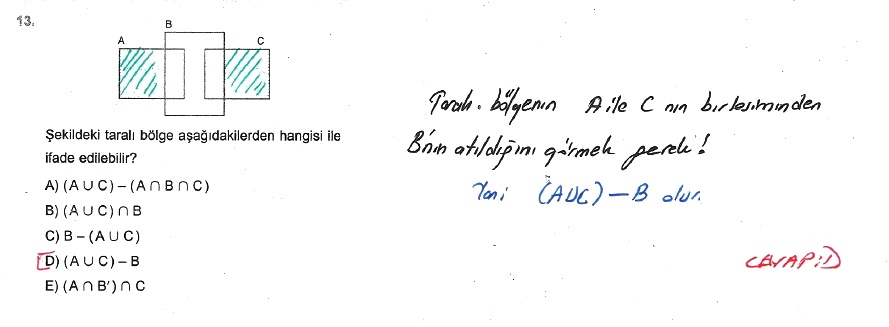 13.
B
A
C
Şekildeki taralı bölge aşağıdakilerden hangisi ile
ifade edilebilir?
A) (A ∪ C) – (A ∩ B ∩ C)
B) (A ∪ C) ∩ B
C) B – (A ∪ C)
D) (A ∪ C) – B
E) (A ∩ B') ∩ C
Taralı bölgenin A ile C nın birleşiminden
B'nin atıldığını görmek gerek!
Yani (A∪C) – B olur.
CEVAP:D